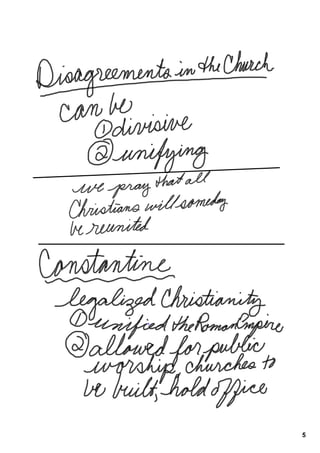 Disagreements in the Church
can be
① divisive
② unifying
we pray that all
Christians will someday
be reunited
Constantine
legalized Christianity
① unified the Roman Empire
② allowed for public
worship, churches to
be built, hold office
5